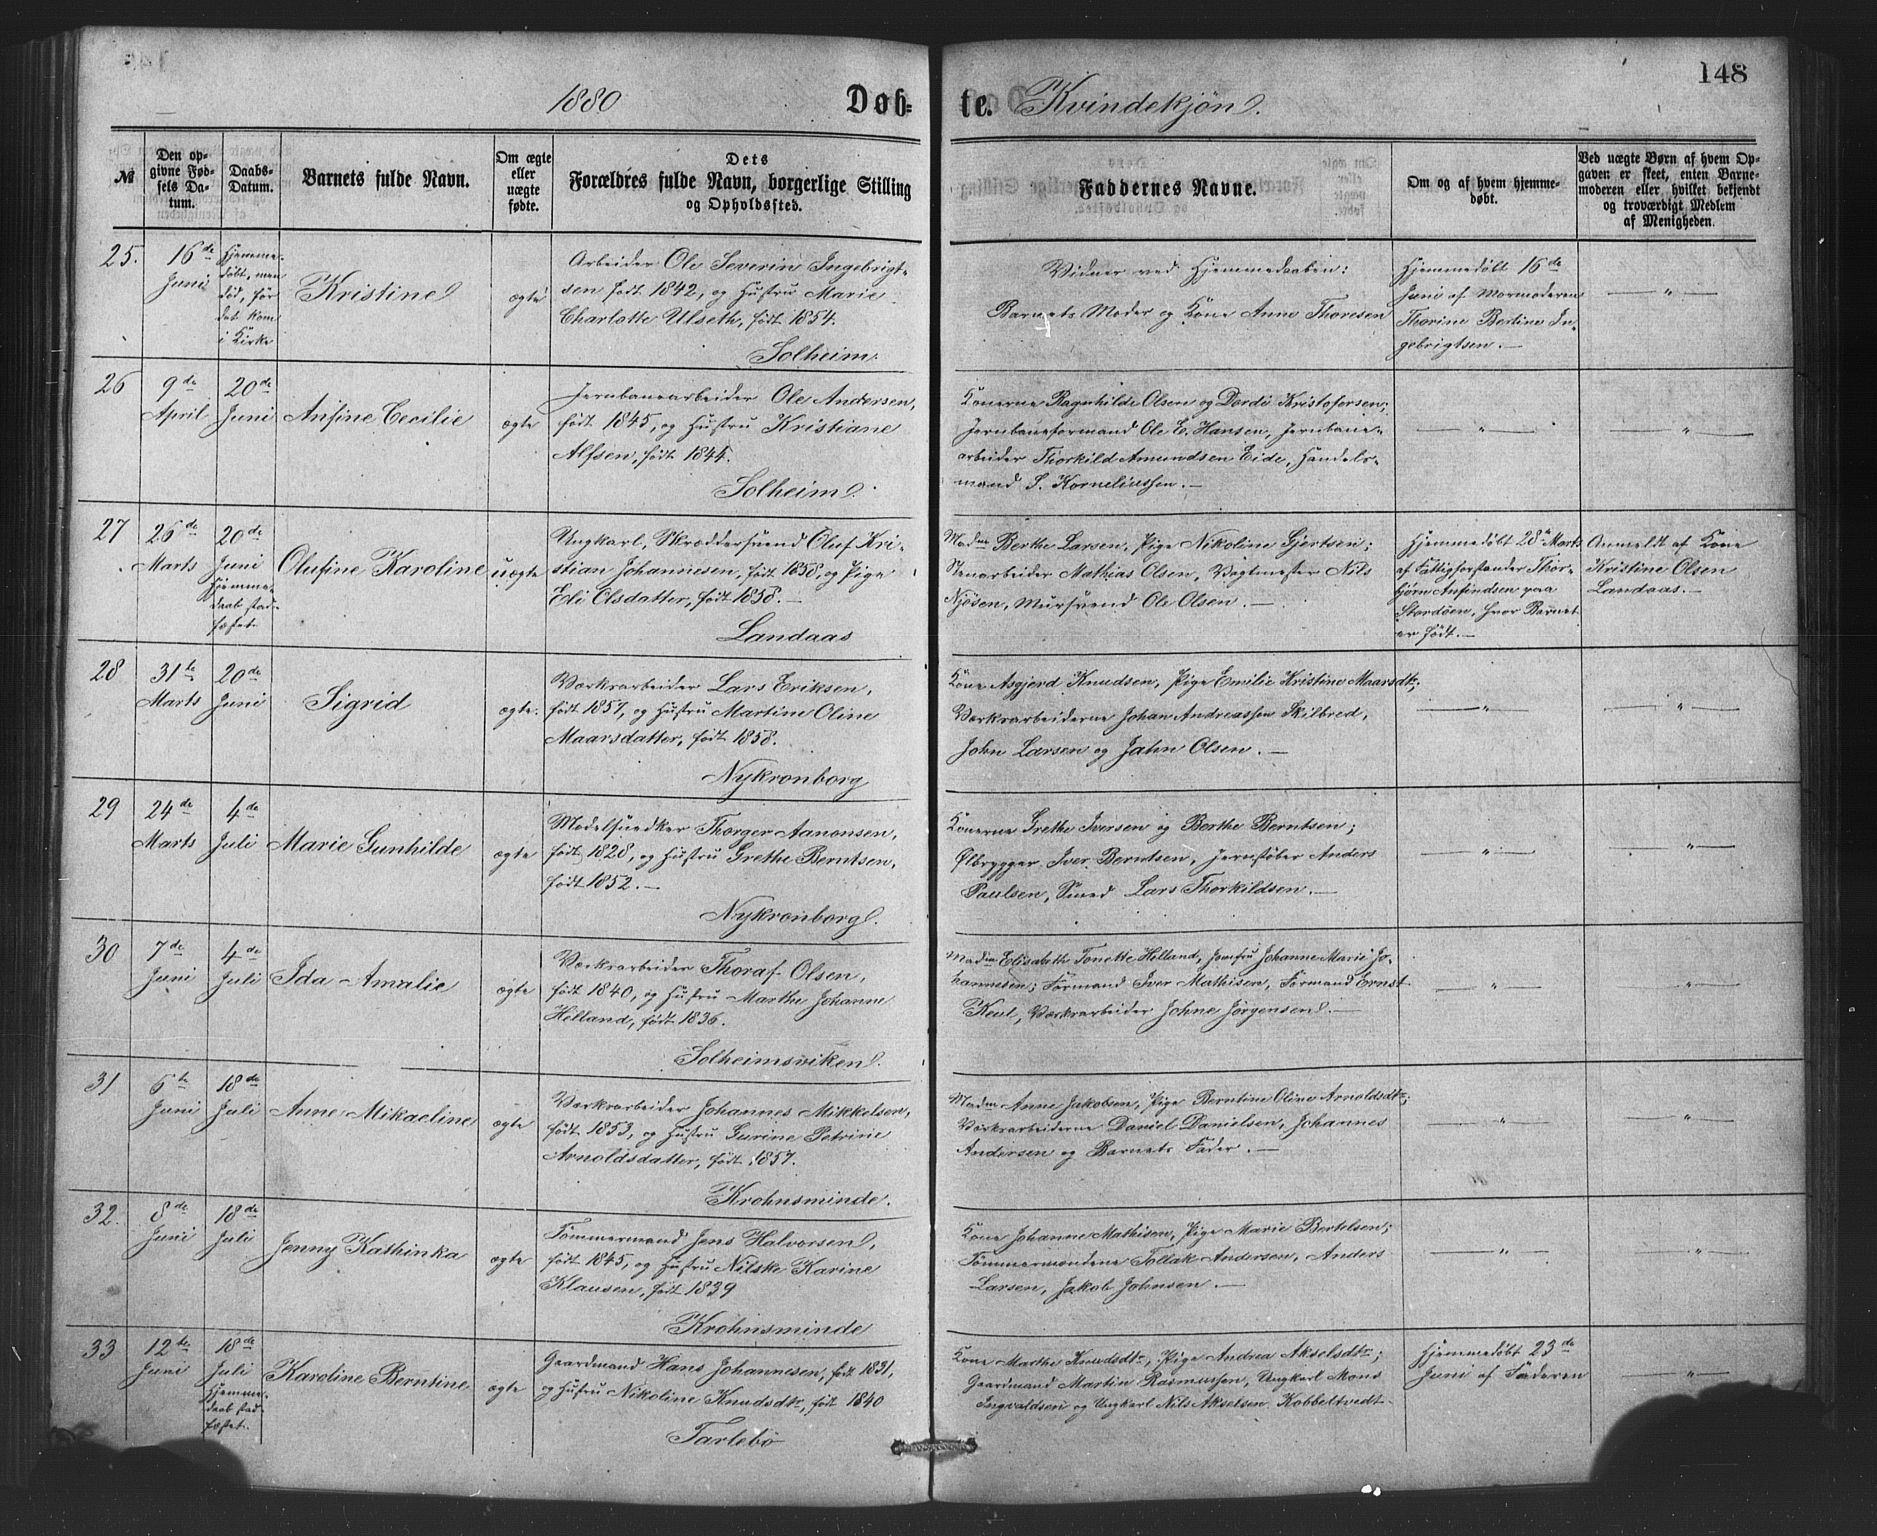 148
1880 Døb- te. Kvindekjøn.
№
Den op-
givne Fød-
sels Da-
tum.
Daabs-
Datum.
Barnets fulde Navn.
Om ægte
eller
uægte
fødte.
Dets
Forældres fulde Navn, borgerlige Stilling
og Opholdssted.
Faddernes Navne.
Om og af hvem hjemme-
døbt.
Ved uægte Børn af hvem Op-
gaven er skeet, enten Barne-
moderen eller hvilket bekjendt
og troværdigt Medlem
af Menigheden.
25.
16de
Juni
Hjemme-
døbt, men
død, før
det kom
i Kirke
Kristine
ægte
Arbeider Ole Severin Ingebrigt-
sen født 1842, og Hustru Marie
Charlotte Ulseth, født 1854.
Solheim.
Vidner ved Hjemmedaaben:
Barnets Moder og Kone Anne Thoresen
Hjemmedøbt 16de
Juni af Mormoderen
Thorine Bertine In-
gebrigtsen. —
— " —
26
9de
April
20de
Juni
Anfine Cecilie
ægte
Jernbanearbeider Ole Andersen,
født 1845, og Hustru Kristiane
Alfsen, født 1844.
Solheim.
Konerne Ragnhilde Olsen og Dordi Kristofersen;
Jernbaneformand Ole E. Hansen, Jernbane-
arbeider Thorkild Amundsen Eide, Handels-
mand S. Korneliussen. —
— " —
— " —
27
26de
Marts
20de
Juni
Hjemme-
daab stad-
fæstet.
Olufine Karoline
uægte
Ungkarl, Skræddersvend Oluf Kri-
stian Johannesen, født 1858, og Pige
Eli Olsdatter, født 1858. —
Landaas
Madm Berthe Larsen, Pige Nikoline Gjertsen;
Stenarbeider Mathias Olsen, Vagtmester Nils
Njøsen, Mursvend Ole Olsen. —
Hjemmedøbt 28de Marts
af Fattigforstander Thor-
bjørn Anfindsen paa
Stordøen, hvor Barnet
er født. —
Anmeldt af Kone
Kristine Olsen
Landaas. —
28
31te
Marts
20de
Juni
Sigrid
ægte.
Værkrarbeider Lars Eriksen,
født 1857, og Hustru Martine Oline
Maarsdatter, født 1858.
Nykronborg
Kone Asgjerd Knudsen, Pige Emilie Kristine Maarsdtr;
Værkrarbeiderne Johan Andreassen Skilbred,
John Larsen og Jahn Olsen. —
— " —
— " —
29
24de
Marts
4de
Juli
Marie Gunhilde
ægte
Modelsnedker Thorger Aanonsen,
født 1828, og Hustru Grethe Berntsen,
født 1852. —
Nykronborg.
Konerne Grethe Iversen og Berthe Berntsen;
Ølbrygger Iver Berntsen, Jernstøber Anders
Paulsen, Smed Lars Thorkildsen. —
— " —
— " —
30
7de
Juni
4de
Juli
Ida Amalie
ægte
Værkrarbeider Thoraf Olsen,
født 1840, og Hustru Marthe Johanne
Helland, født 1836.
Solheimsviken.
Madm Elisabeth Tonette Helland, Jomfru Johanne Marie Jo-
hannesen; Formand Iver Mathisen, Formand Ernst
Keul, Værkrarbeider Johne Jørgensen. —
— " —
— " —
31
6te
Juni
18de
Juli
Anne Mikaeline
ægte
Værkrarbeider Johannes Mikkelsen,
født 1853, og Hustru Gurine Petrine
Arnoldsdatter, født 1857.
Krohnsminde.
Madm Anne Jakobsen, Pige Berntine Oline Arnoldsdtr;
Værkrarbeiderne Daniel Danielsen, Johannes
Andersen og Barnets Fader. —
— " —
— " —
32.
8de
Juni
18de
Juli
Jenny Kathinka
ægte
Tømmermand Jens Halvorsen,
født 1845, og Hustru Nilske Karine
Klausen, født 1839
Krohnsminde
Kone Johanne Mathisen, Pige Marie Bertelsen;
Tømmermændene Tollak Andersen, Anders
Larsen, Jakob Johnsen. —
— " —
— " —
33
12te
Juni
18de
Juli
Hjemme-
daab stad-
fæstet.
Karoline Berntine
ægte
Gaardmand Hans Johannesen, født 1831,
og Hustru Nikoline Knudsdtr, født 1840
Tarlebø
Kone Marthe Knudsdtr, Pige Andrea Akselsdtr;
Gaardmand Martin Rasmussen, Ungkarl Mons
Ingvaldsen og Ungkarl Nils Akselsen Kobbeltvedt
Hjemmedøbt 23de
Juni af Faderen
— " —